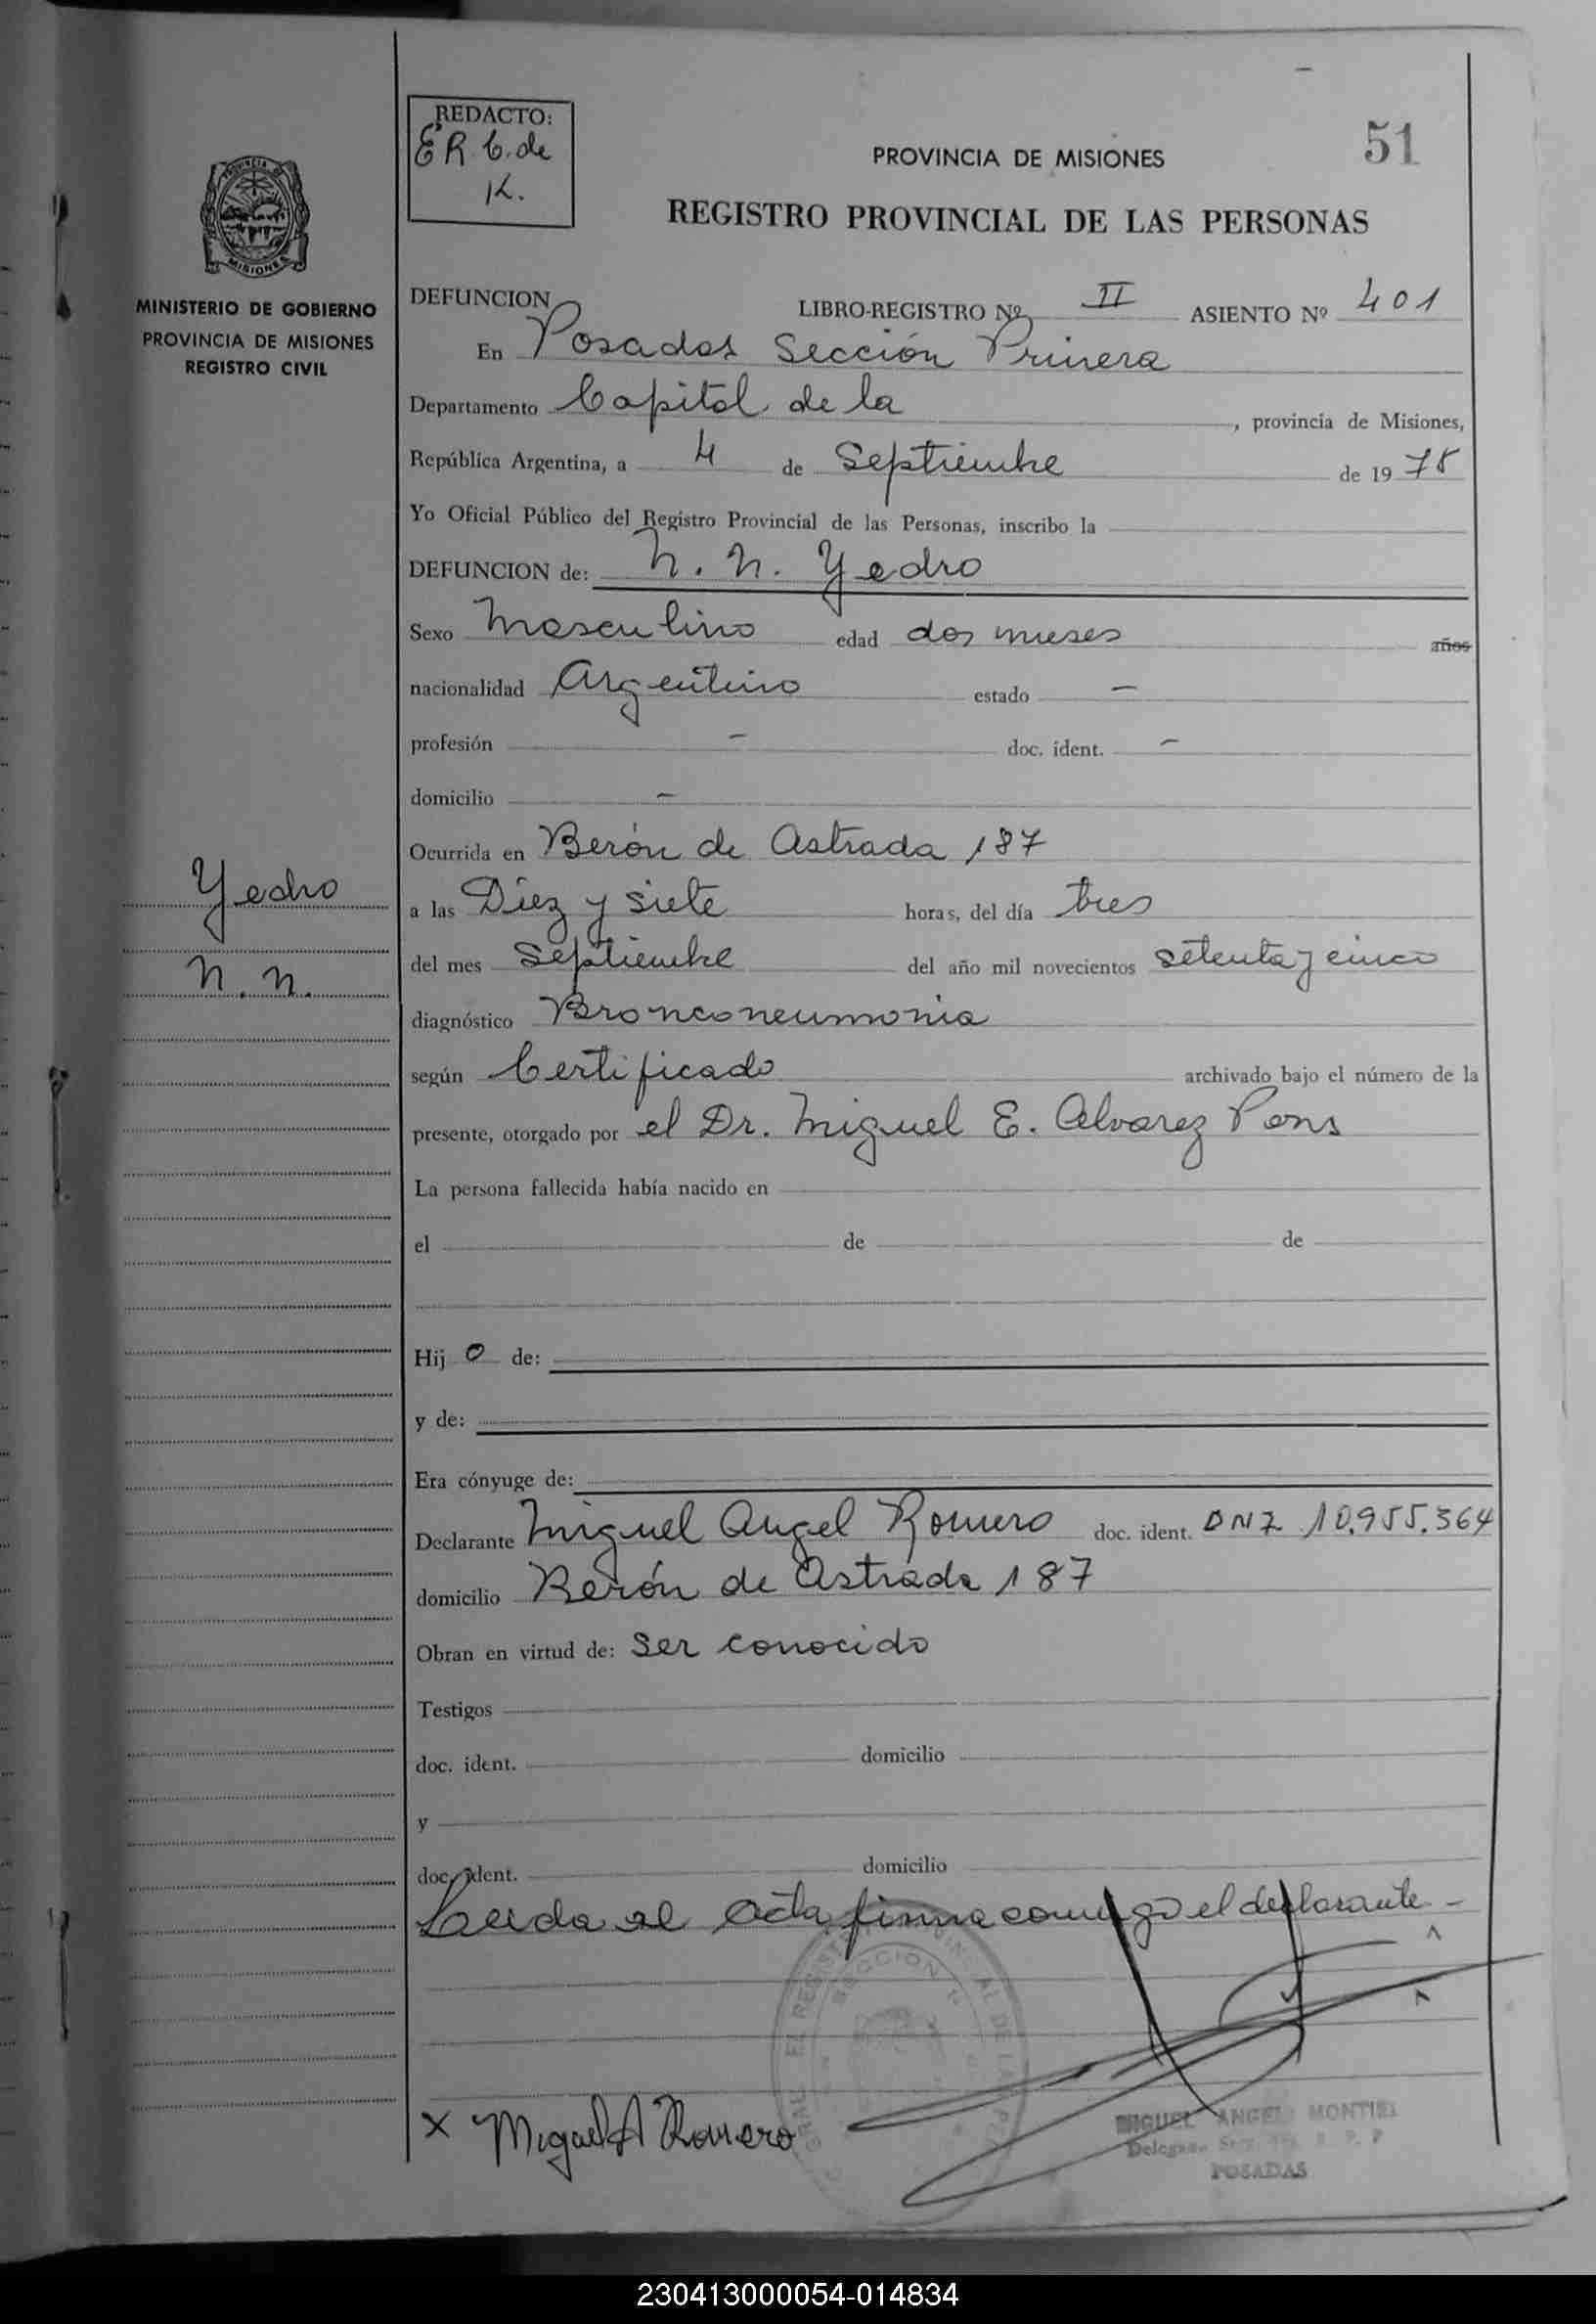 REDACTO:
E R C. de
K.
51
PROVINCIA DE MISIONES
REGISTRO PROVINCIAL DE LAS PERSONAS
PROVINCIA DE
MISIONES
MINISTERIO DE GOBIERNO
PROVINCIA DE MISIONES
REGISTRO CIVIL
DEFUNCION
LIBRO-REGISTRO Nº II ASIENTO Nº 401
En Posadas Sección Primera
Departamento Capital de la , provincia de Misiones,
República Argentina, a 4 de Septiembre de 1975
Yo Oficial Público del Registro Provincial de las Personas, inscribo la
DEFUNCION de: N. N. Yedro
Sexo Masculino edad dos meses años
nacionalidad Argentino estado –
profesión – doc. ident. –
domicilio –
Ocurrida en Berón de Astrada 187
Yedro
N. N.
a las Diez y siete horas, del día tres
del mes Septiembre del año mil novecientos setenta y cinco
diagnóstico Bronconeumonia
según Certificado archivado bajo el número de la
presente, otorgado por el Dr. Miguel E. Alvarez Pons
La persona fallecida había nacido en
el de de
Hij o de:
y de:
Era cónyuge de:
Declarante Miguel Angel Romero doc. ident. DNI 10.955.364
domicilio Berón de Astrada 187
Obran en virtud de: ser conocido
Testigos
doc. ident. domicilio
y
doc. ident. domicilio
Leida el acta firma conmigo el declarante –
SECCION 1ª
x Miguel A Romero
MIGUEL ANGEL MONTIEL
POSADAS
230413000054-014834